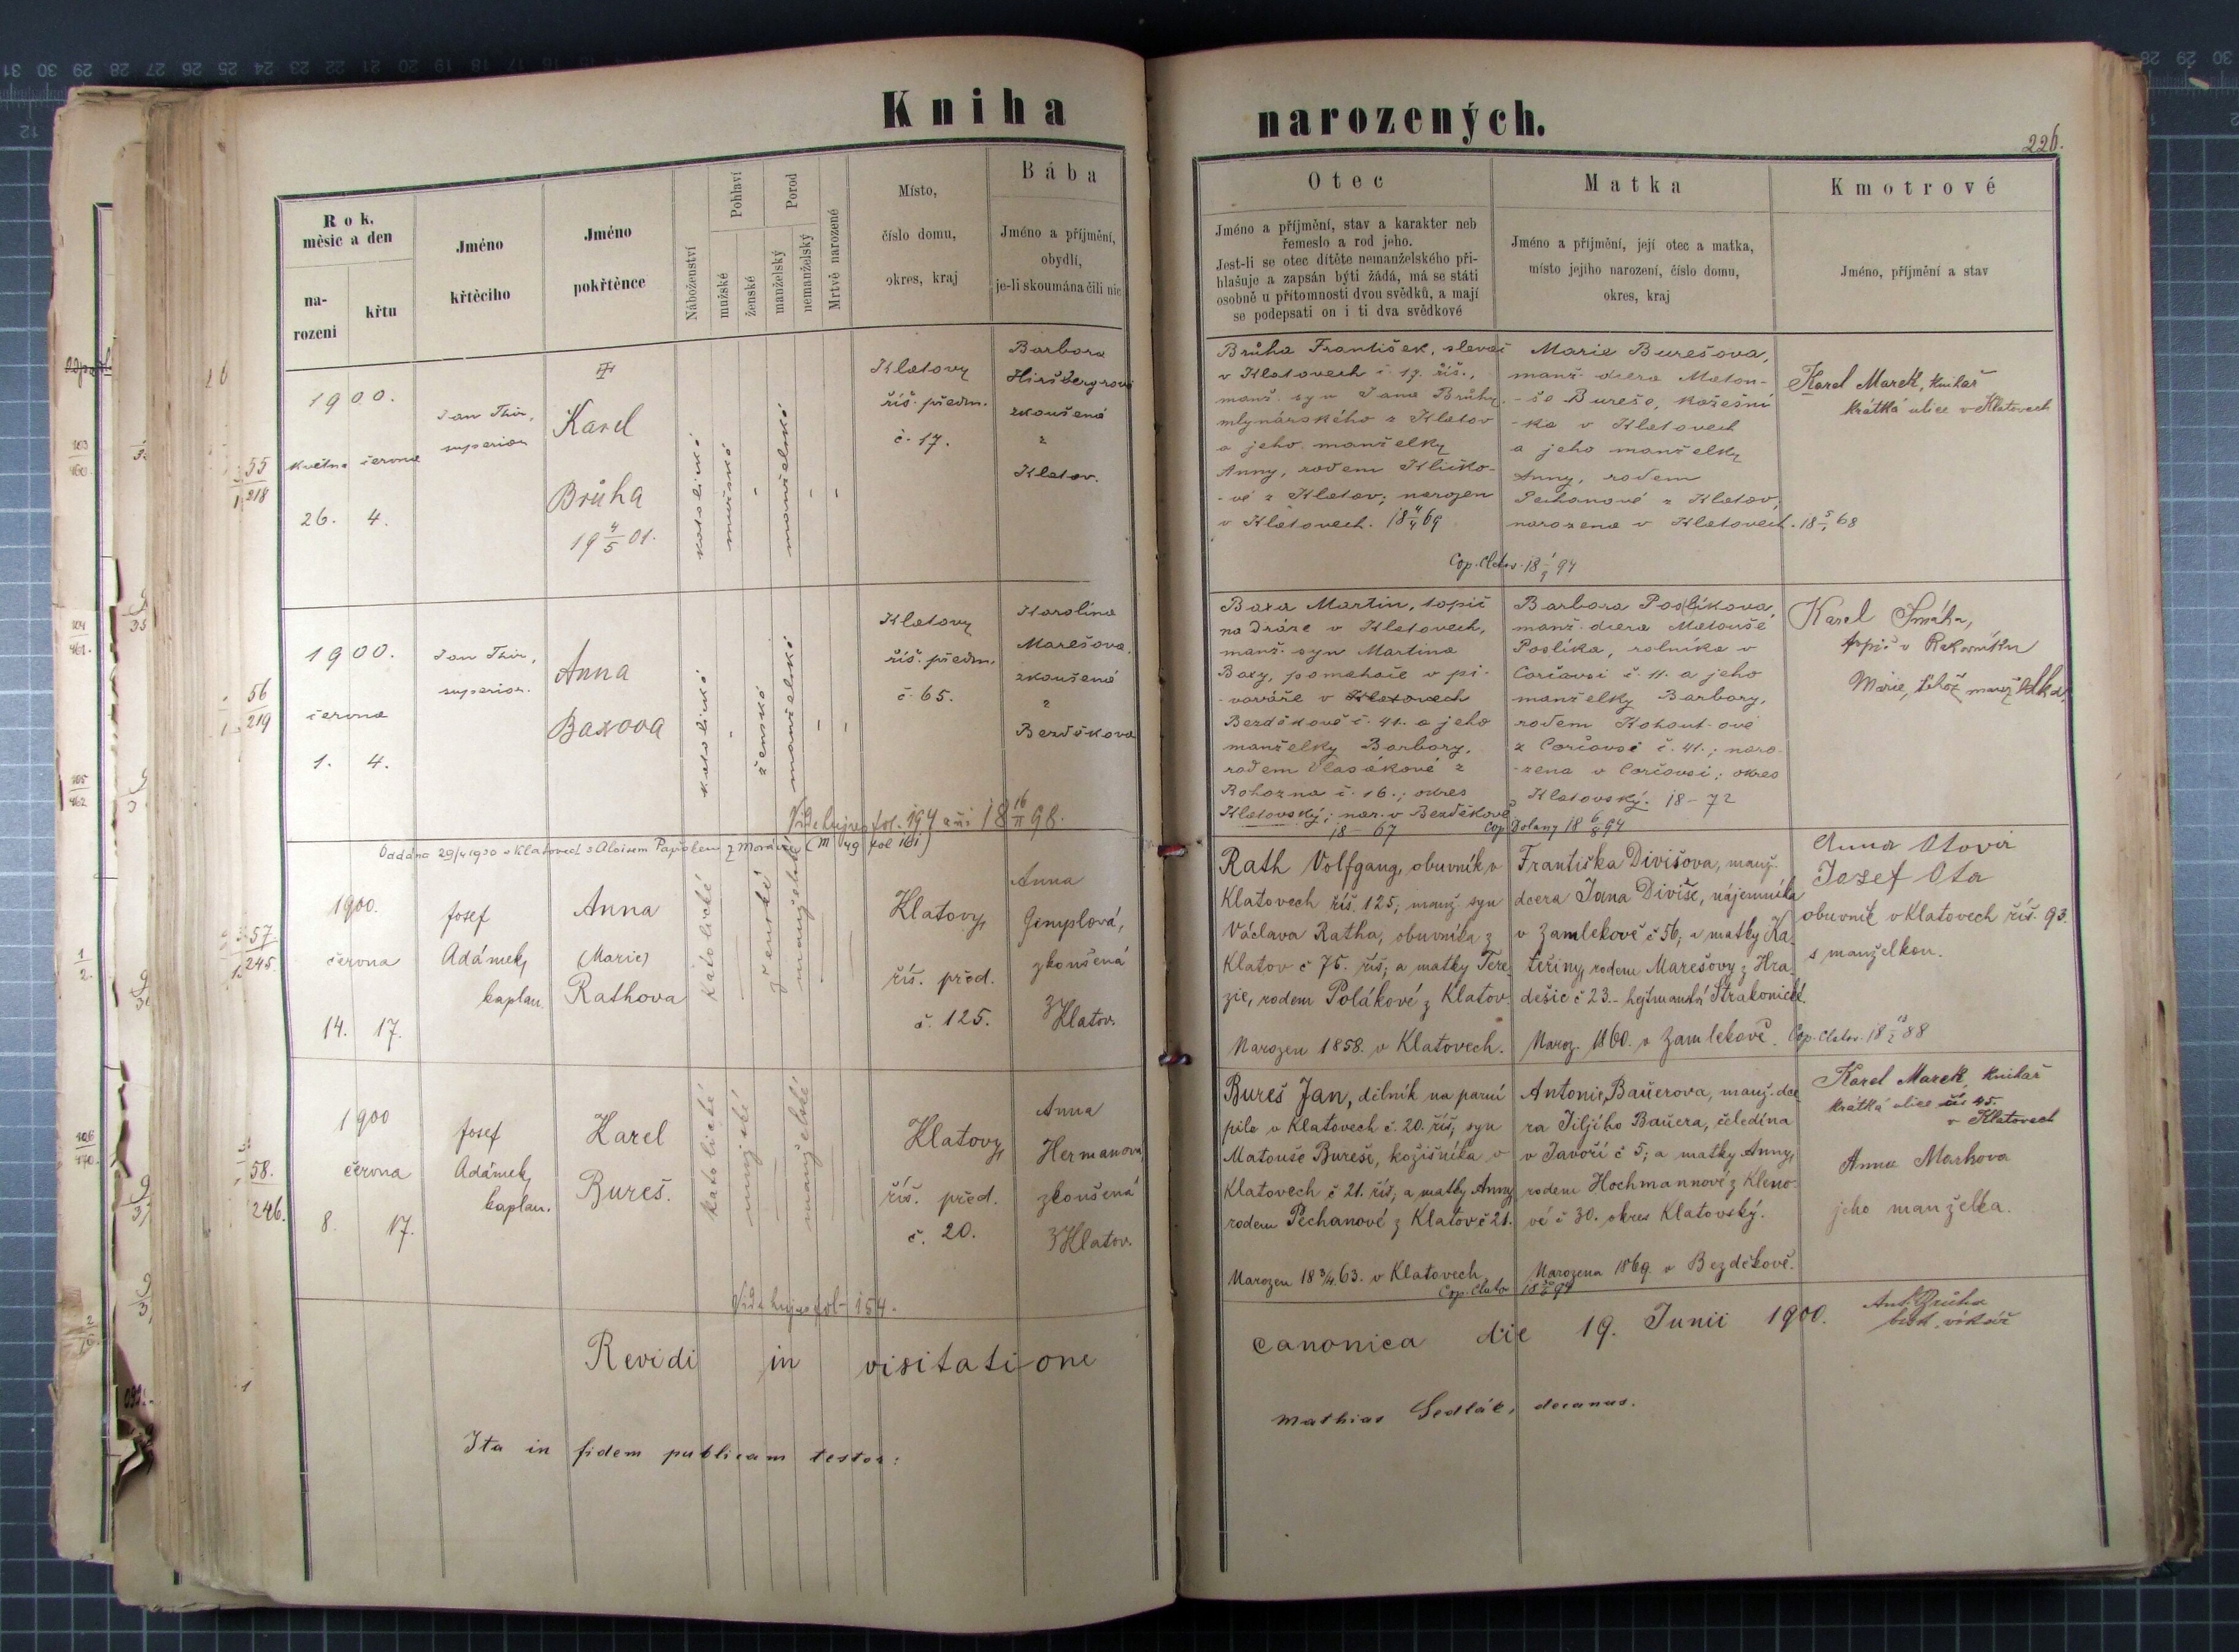 Kniha narozených.
226.
Rok, měsíc a den
narození
křtu
Jméno křtěcího
Jméno pokřtěnce
Náboženství
Pohlaví
mužské
ženské
Porod
manželský
nemanželský
Mrtvě narozené
Místo,
číslo domu,
okres, kraj
Bába
Jméno a příjmění,
obydlí,
je-li skoumána čili nic
Otec
Jméno a příjmění, stav a karakter neb
řemeslo a rod jeho.
Jest-li se otec dítěte nemanželského při-
hlašuje a zapsán býti žádá, má se státi
osobně u přítomnosti dvou svědků, a mají
se podepsati on i ti dva svědkové
Matka
Jméno a příjmění, její otec a matka,
místo jejího narození, číslo domu,
okres, kraj
Kmotrové
Jméno, příjmění a stav
55
218
1900.
května června
26. 4.
Jan Thir,
superior
Karel
Brůha
19 4/5 01.
katolické
mužské
-
manželské
-
-
Klatovy
říš. předm.
č. 17.
Barbora
Hiršbergrová
zkoušená
z
Klatov.
Brůha František, slevač
v Klatovech č. 17. říš.,
manž. syn Jana Brůhy,
mlynářského z Klatov
a jeho manželky
Anny, rodem Kličko-
-vé z Klatov; narozen
v Klatovech. 18 4/4 69
Marie Burešova,
manž. dcera Matou-
-še Bureše, kožešní
-ka v Klatovech
a jeho manželky
Anny, rodem
Pechanové z Klatov;
narozena v Klatovech. 18 5/1 68
Cop. Clatov. 18 1/9 94
Karel Marek, knihař
krátká ulice v Klatovech
56
219
1900.
června
1. 4.
Jan Thir,
superior.
Anna
Baxova
katolické
-
ženské
manželské
-
-
Klatovy
říš. předm.
č. 65.
Karolina
Marešova,
zkoušená
z
Bezděkova
Vide hujus fol. 194 18 16/11 98.
Baxa Martin, topič
na dráze v Klatovech,
manž. syn Martina
Baxy, pomahače v pi-
-vováře v Klatovech
Bezděkově č. 41. a jeho
manželky Barbory,
rodem Vlasákové z
Bohozna č. 16.; okres
Klatovský; nar. v Bezděkově
18 - 67
Barbora Poslíkova,
manž. dcera Matouše
Poslíka, rolníka v
Corčavsi č. 11. a jeho
manželky Barbory,
rodem Kohout-ové
z Corčavsi č. 41.; naro-
-zena v Corčavsi; okres
Klatovský. 18 - 72
Cop. Dolany 18 6/8 94
Karel Smáha,
topič v Rakovníku
Marie, téhož manželka
Oddána 29/4 1930 v Klatovech s Aloisem z Moravi (m 49 fol 161)
57.
245.
1900.
června
14. 17.
Josef
Adámek,
kaplan.
Anna
(Marie)
Rathova
katolické
ženské
manželské
Klatovy,
říš. před.
č. 125.
Anna
Gimplová,
zkoušená
z Klatov.
Rath Volfgang, obuvník v
Klatovech říš. 125; manž. syn
Václava Ratha, obuvníka z
Klatov č 75. říš; a matky Tere-
zie, rodem Polákové z Klatov
Narozen 1858. v Klatovech.
Františka Divišova, manž.
dcera Jana Diviše, nájemníka
v Zamlekově č 56; a matky Ka-
teřiny, rodem Marešovy z Hra-
dešic č 23.- hejtmanství Strakonické.
Naroz. 1860. v Zamlekově. Cop. Clatov. 18 13/2 88
Anna Otova
Josef Ota
obuvník v Klatovech říš. 93.
s manželkou.
58.
246.
1900
června
8. 17.
Josef
Adámek,
kaplan.
Karel
Bureš.
katolické
mužské
manželské
Klatovy,
říš. před.
č. 20.
Anna
Hermanová,
zkoušená
z Klatov.
Vide hujus fol - 154.
Bureš Jan, dělník na parní
pile v Klatovech č. 20. říš; syn
Matouše Bureše, kožišníka v
Klatovech č 21. říš; a matky Anny
rodem Pechanové z Klatov č 21.
Narozen 18 3/4 63. v Klatovech
Antonie Baüerova, manž. dce
ra Jiljího Baüera, čeledína
v Javoří č 5; a matky Anny,
rodem Hochmannové z Kleno-
vé č 30. okres Klatovský.
Narozena 1869 v Bezděkově.
Karel Marek, knihař
krátká ulice čís 45.
v Klatovech
Anna Markova
jeho manželka.
Revidi in visitatione canonica die 19. Junii 1900.
Ant. Brůha
bisk. vikář
Ita in fidem publicam testor:
Mathias Sedlák, decanus.